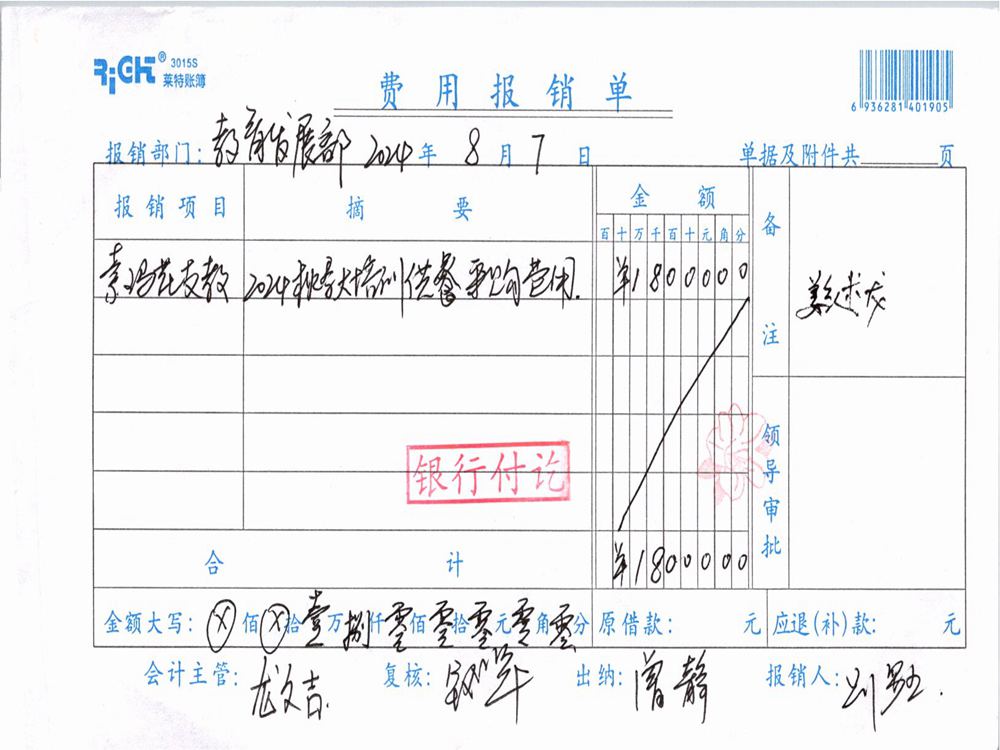 RiGHT® 3015S
莱特账簿
费用报销单
6 936281 401905
报销部门：教育发展部 2024年 8月7日 单据及附件共 页
报销项目 摘要 金额 备注
百十万千百十元角分
索玛花支教 2024秋季大培训供餐采购费用. ¥1800000
姜述龙
银行付讫
领导审批
合计 ¥1800000
金额大写：ⓧ佰ⓧ拾壹万捌仟零佰零拾零元零角零分 原借款： 元 应退(补)款： 元
会计主管：龙文吉. 复核： 出纳：曾静 报销人：